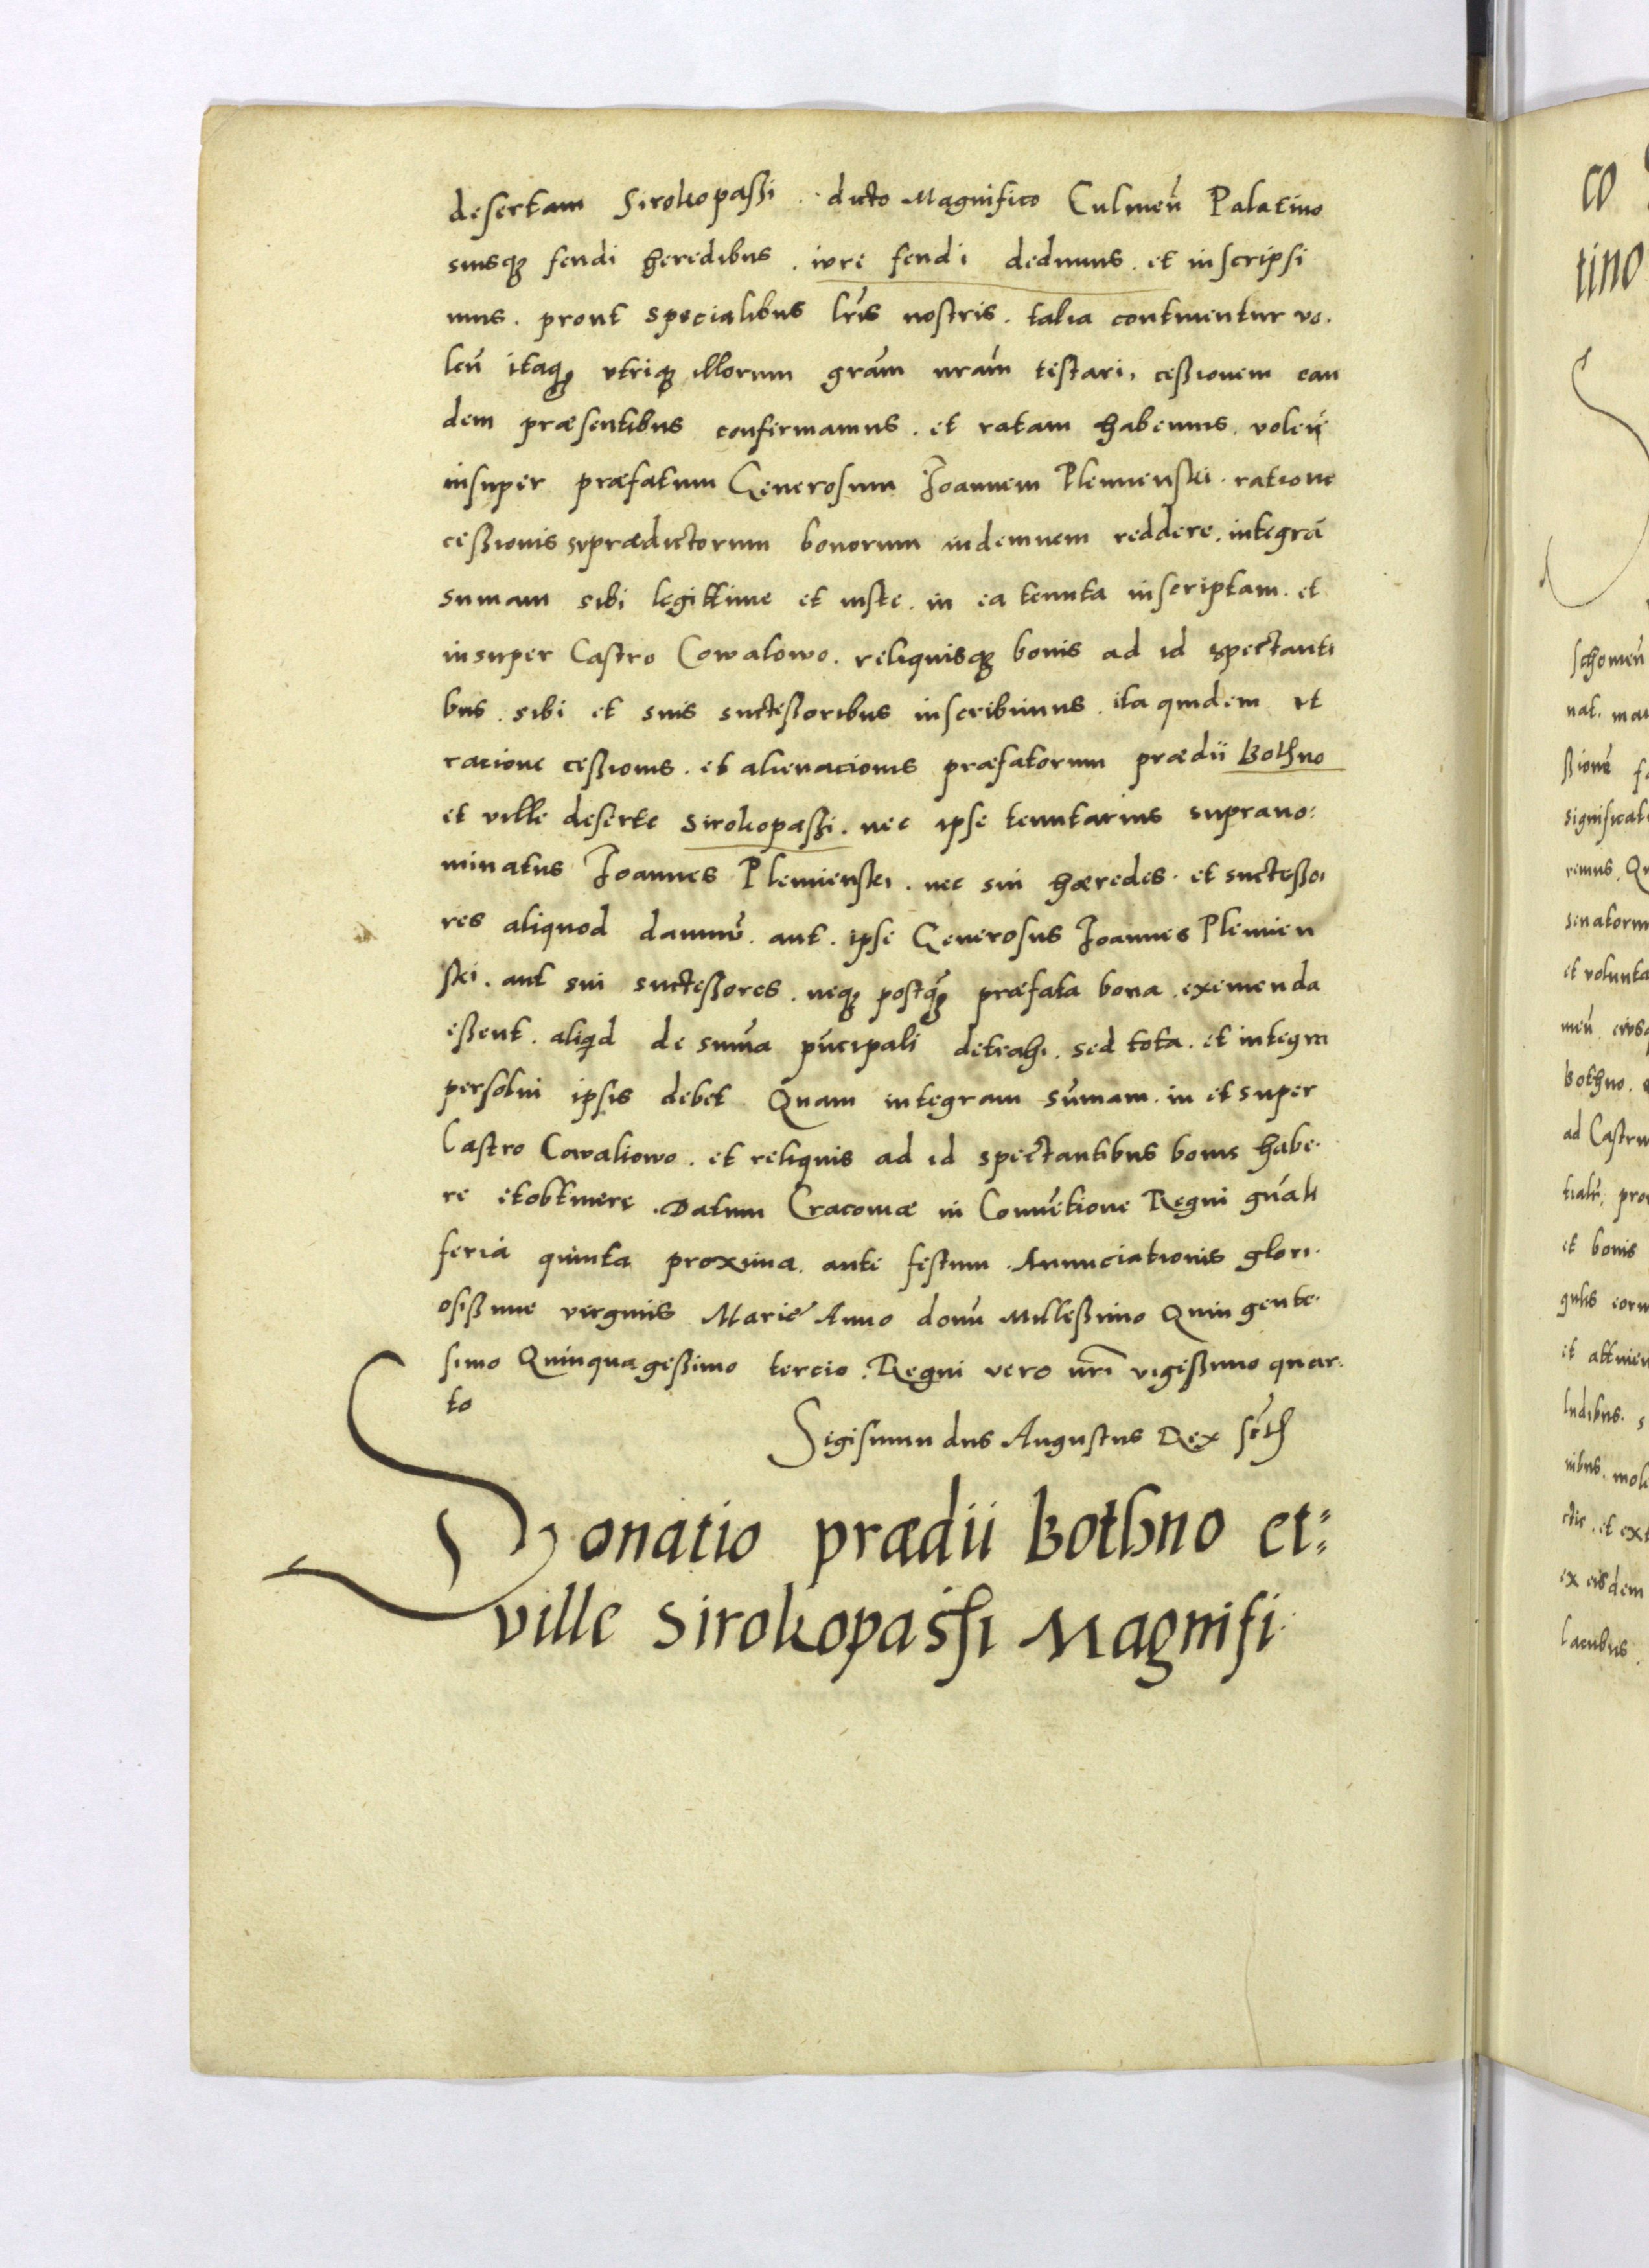 desertam Sirokopaßi . dicto Magnifico Culmeñ Palatino
suisq3 feudi heredibus . iure feudi dedimus . et inscripsi
mus . prout specialibus lris nostris . talia continentur vo.
leñ itaq3 utriq3 illorum gram nram testari, ceßionem ean
dem præsentibus confirmamus . et ratam habemus . voleñ
insuper præfatum Generosum Joannem Plemienski . ratione
ceßionis supraedictorum bonorum indemnem reddere . integrā
sumam sibi legittime et iuste . in ea tenuta inscriptam . et
insuper Castro Cowalowo . reliquisq3 bonis ad id spectanti
bus . sibi et suis succeßoribus inscribimus . ita quidem ut
racione ceßionis . et alienacionis præfatorum prædii Bothno
et ville deserte Sirokopaßi . nec ipse tenutarius suprano:
minatus Joannes Plemienski . nec sui hæredes . et succeßo,
res aliquod damnū . aut . ipse Generosus Joannes Plemien
ski . aut sui succeßores . neq3 postq3 præfata bona . eximenda
eßent . aliqid de suma pncipali detrahi . sed tota . et integra
persolui ipsis debet Quam integram sumam . in et super
Castro Cowaliowo . et reliquis ad id spectantibus bonis habe.
re et obtinere . Datum Cracoviæ in Conuētione Regni gnali
feria quinta proxima . ante festum . Anunciationis glori.
osißime virginis Marie Anno domi Milleßimo Quingente.
simo Quinquageßimo tercio . Regni vero nri vigeßimo quar.
to
Sigismundus Augustus Rex
Donatio prædii Bothno et=
ville Sirokopaßi Magnifi.
co
tino
schomeñ
nat.
ßionē
significat
remus . Qu
senatorum
et volunta
meñ
Bothno .
ad Castru
et bonis
et attinen
ludibus . s
nibus . mol
ex eisdem
lacubus .